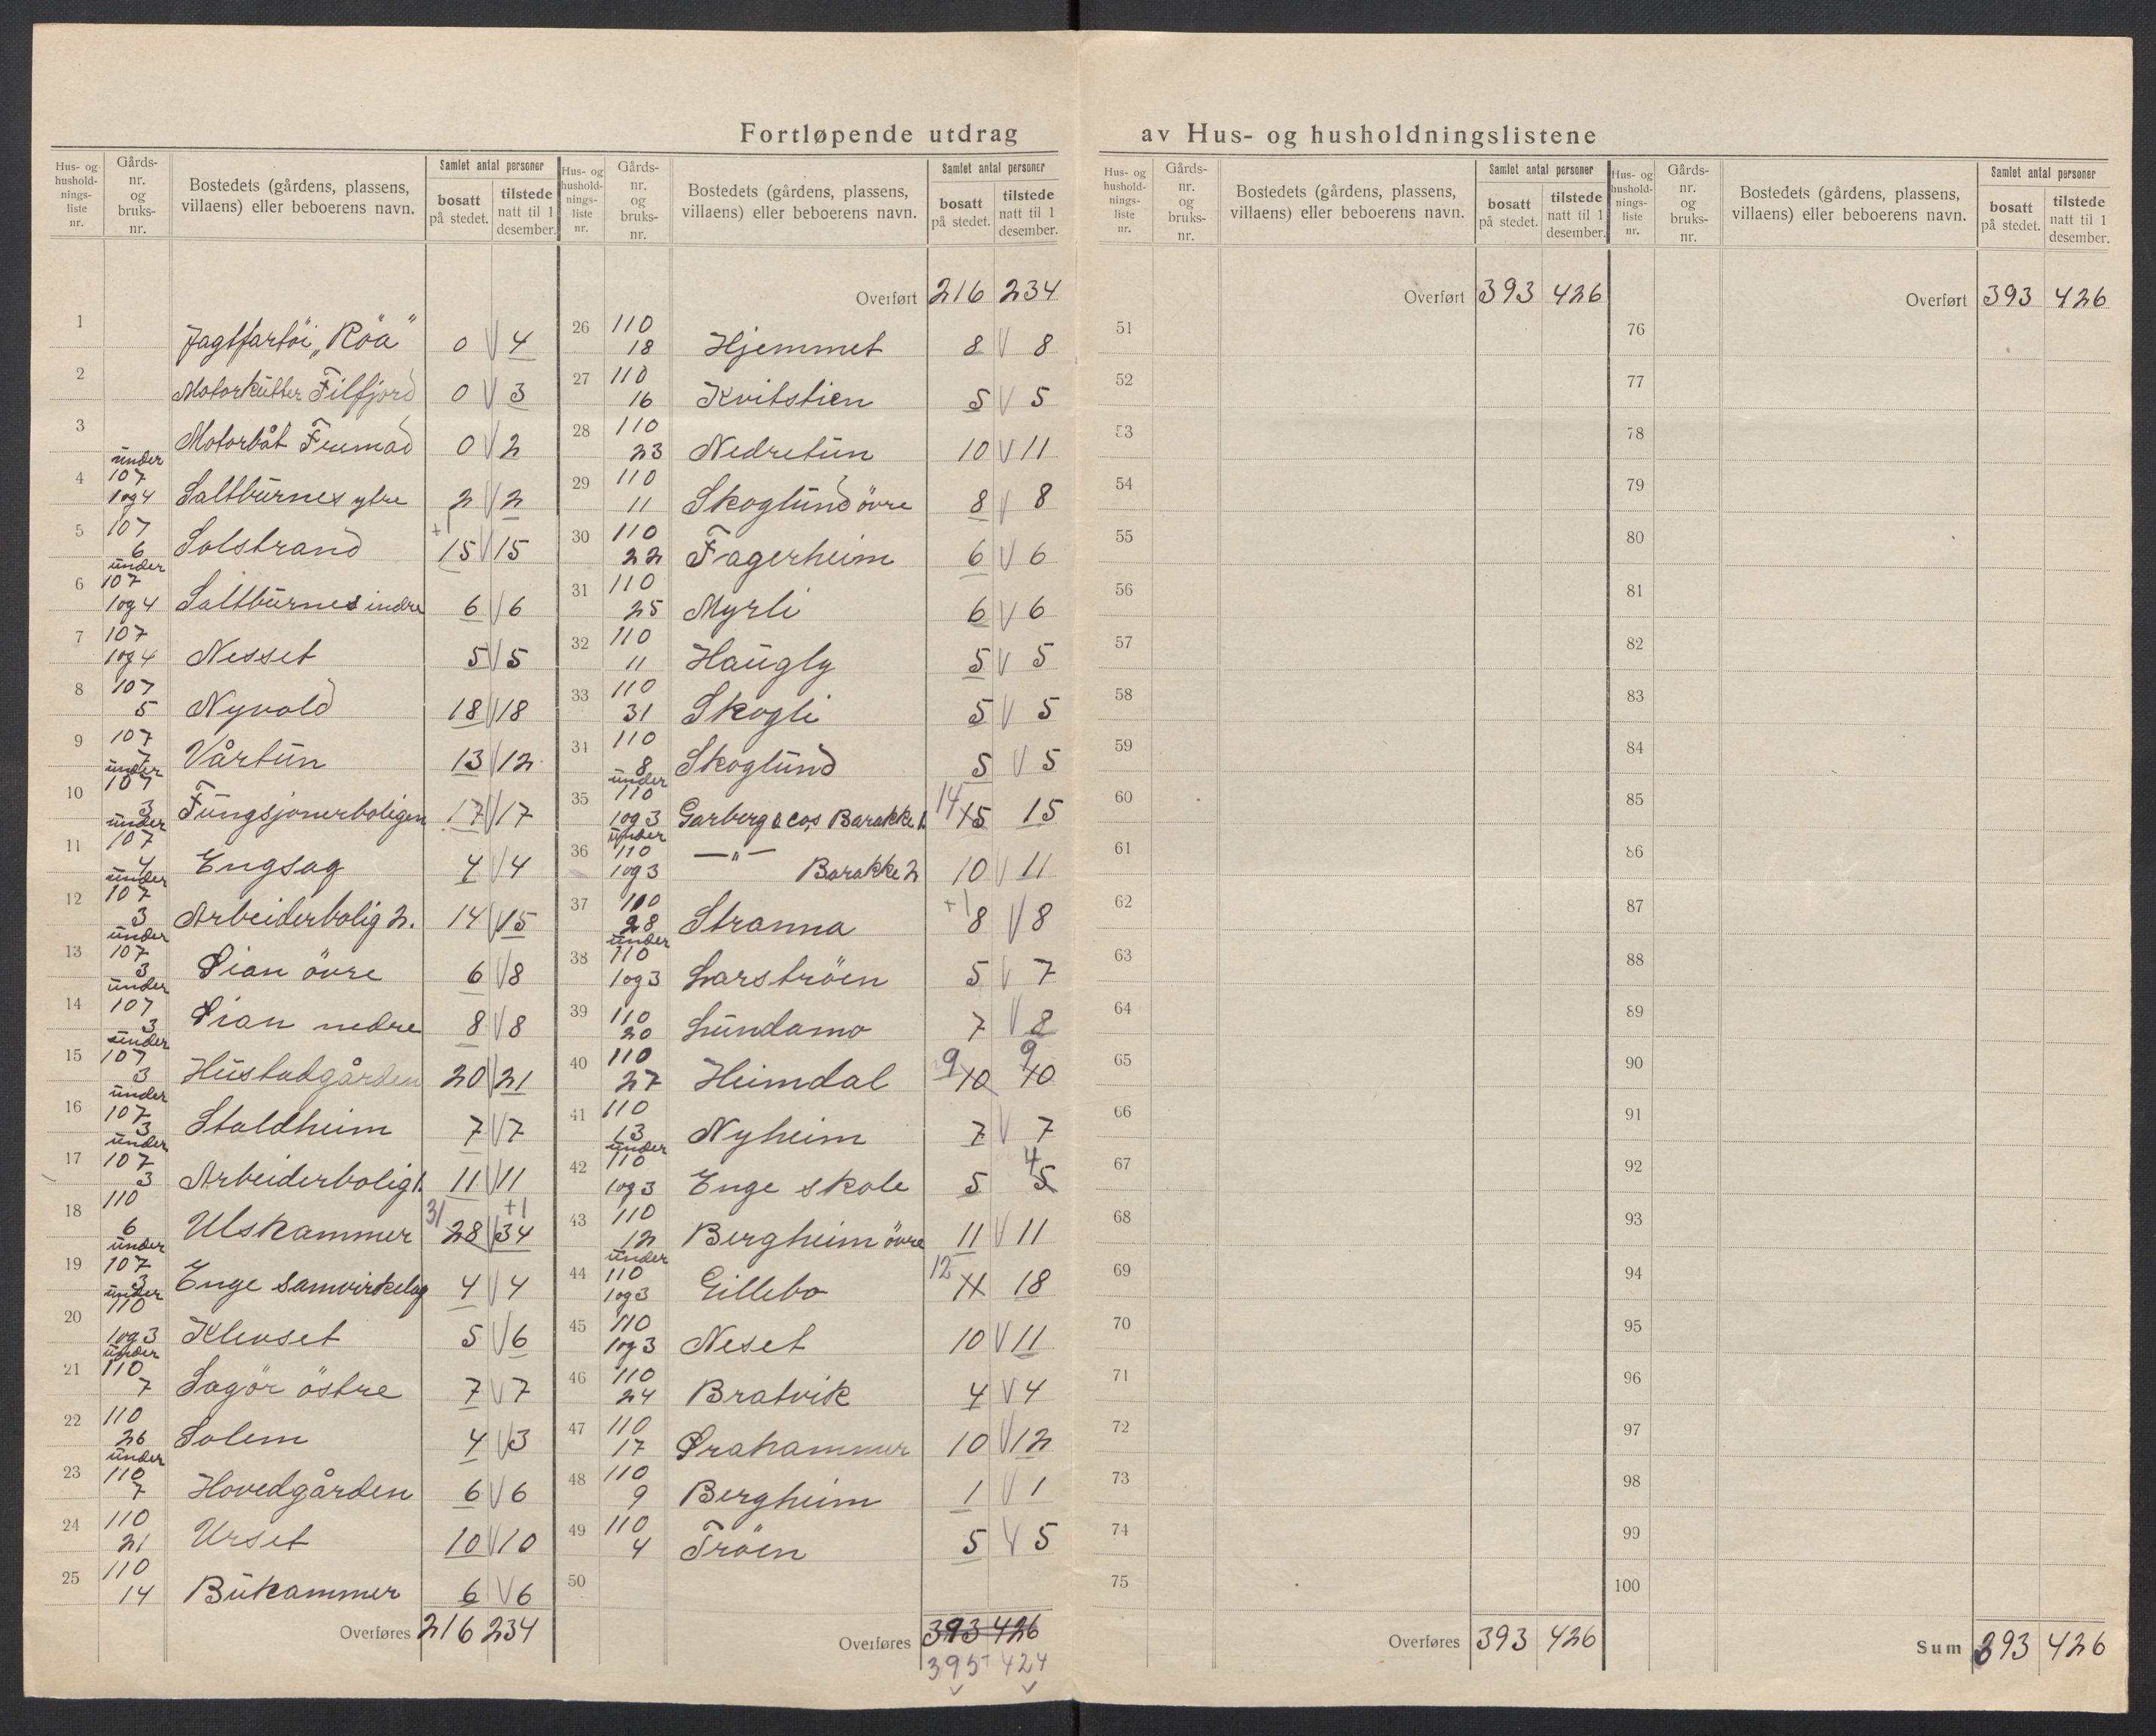 Fortløpende utdrag av Hus- og husholdningslistene
Hus- og hushold-nings-liste nr. Gårds-nr. og bruks-nr. Bostedets (gårdens, plassens, villaens) eller beboerens navn. Samlet antal personer bosatt på stedet. tilstede natt til 1 desember.
1 Jagtfartöi „Röa" 0 4
2 Motorkutter Filfjord 0 3
3 Motorbåt Fremad 0 2
4 under 107 1og4 Saltburnes ytre 2 2
5 107 6 Solstrand +1 15 15
6 under 107 1og4 Saltburnes indre 6 6
7 107 1og4 Nesset 5 5
8 107 5 Nyvold 18 18
9 107 7 Vårtun 13 12
10 under 107 3 Fungsjonerboligen 17 17
11 under 107 4 Engsag 4 4
12 under 107 3 Arbeiderbolig 2. 14 15
13 under 107 3 Lian övre 6 8
14 under 107 3 Lian nedre 8 8
15 under 107 3 Hustadgården 20 21
16 under 107 3 Staldheim 7 7
17 under 107 3 Arbeiderbolig 1. 11 11
18 110 6 Ulskammer 31 28 +1 34
19 under 107 3 Enge Samvirkelag 4 4
20 under 110 1og3 Klevset 5 6
21 under 110 7 Sagör östre 7 7
22 110 26 Solem 4 3
23 under 110 7 Hovedgården 6 6
24 110 21 Urset 10 10
25 110 14 Bukammer 6 6
Overføres 216 234
Hus- og hushold-nings-liste nr. Gårds-nr. og bruks-nr. Bostedets (gårdens, plassens, villaens) eller beboerens navn. Samlet antal personer bosatt på stedet. tilstede natt til 1 desember.
Overført 216 234
26 110 18 Hjemmet 8 8
27 110 16 Kvitstien 5 5
28 110 23 Nedretun 10 11
29 110 11 Skoglund övre 8 8
30 110 22 Fagerheim 6 6
31 110 25 Myrli 6 6
32 110 11 Haugly 5 5
33 110 31 Skogli 5 5
34 110 8 Skoglund 5 5
35 under 110 1og3 Garberg & Cos Barakke 1. 14 15 15
36 under 110 1og3 —"— Barakke 2 10 11
37 110 28 Stranna +1 8 8
38 under 110 1og3 Larströen 5 7
39 110 20 Lundamo 7 8
40 110 27 Heimdal 9 10 9 10
41 110 13 Nyheim 7 7
42 under 110 1og3 Enge skole 5 4 5
43 110 12 Bergheim övre 11 11
44 under 110 1og3 Gillebo 12 11 18
45 110 1og3 Neset 10 11
46 110 24 Bratvik 4 4
47 110 17 Prahammer 10 12
48 110 9 Bergheim 1 1
49 110 4 Tröen 5 5
50
Overføres 393 426
395 424
Hus- og hushold-nings-liste nr. Gårds-nr. og bruks-nr. Bostedets (gårdens, plassens, villaens) eller beboerens navn. Samlet antal personer bosatt på stedet. tilstede natt til 1 desember.
Overført 393 426
51
52
53
54
55
56
57
58
59
60
61
62
63
64
65
66
67
68
69
70
71
72
73
74
75
Overføres 393 426
Hus- og hushold-nings-liste nr. Gårds-nr. og bruks-nr. Bostedets (gårdens, plassens, villaens) eller beboerens navn. Samlet antal personer bosatt på stedet. tilstede natt til 1 desember.
Overført 393 426
76
77
78
79
80
81
82
83
84
85
86
87
88
89
90
91
92
93
94
95
96
97
98
99
100
Sum 393 426